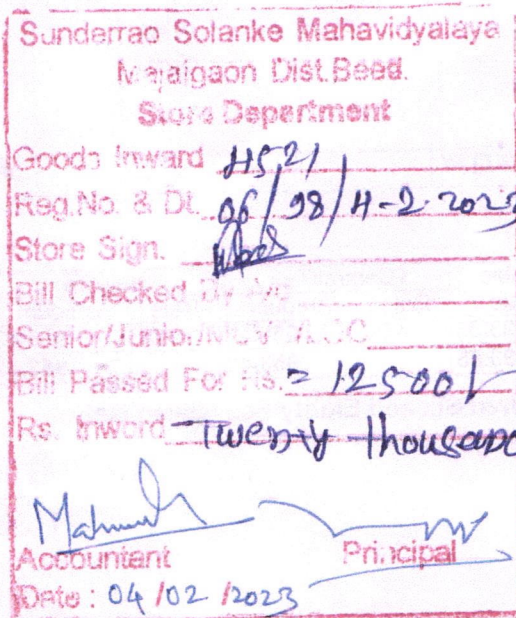 Sunderrao Solanke Mahavidyalaya
Majalgaon Dist.Beed.
Store Department
Goods Inward 4521
Reg.No. & Dt. 06/98/4-2-2023
Store Sign.
Bill Checked By
Senior/Junior/
Bill Passed For Rs. = 12500/-
Rs. Inword Twenty thousand
Accountant Principal
Date : 04/02/2023